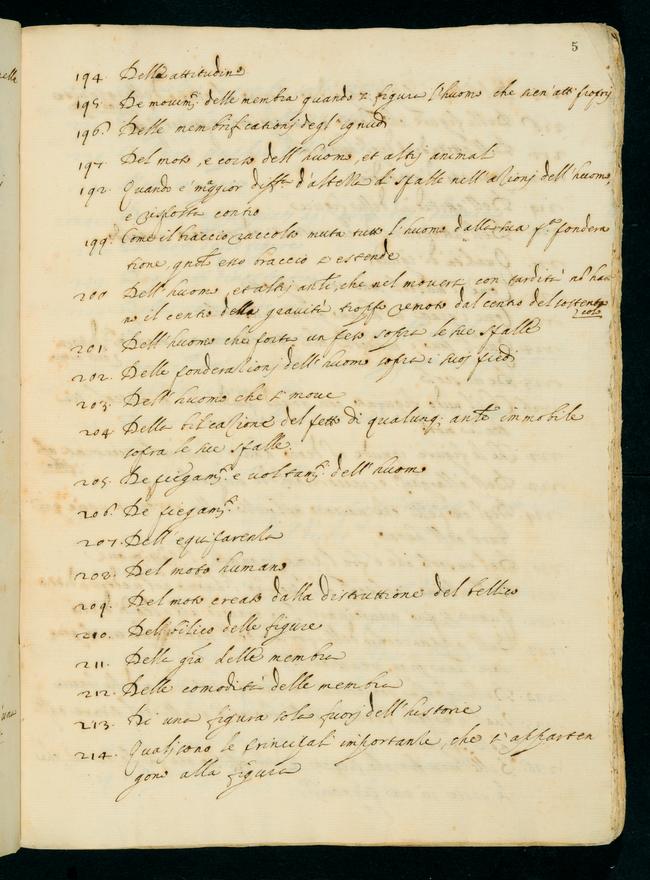 5
194 Delle attitudine
195 De movimti delle membra quando si figura l'huomo che sien atti proprij
196. Delle membrificationj degl'ignudi
197 Del moto, e corso dell'huomo, et altrj animali
198. Quando è maggior diffza d'altezza di spalle nell'azionj dell'huomo,
e risposta contro
199. Come il braccio raccolto muta tutto l'huomo dalla sua pa pondera
tione, qndo esso braccio s'estende
200 Dell'huomo, et altrj anli, che nel movere con tardità nō han
no il centro della gravità troppo remoto dal centro del sostento
201. Dell'huomo che porta un peso sopra le sue spalle
202. Delle ponderazionj dell'huomo sopra i suoj piedi
203. Dell'huomo che si move
204. Della bilicazione del petto di qualunq; anle immobile
sopra le sue spalle.
205. De piegamti e voltamti dell'huomo
206. De piegamti
207. Dell'equiparenza
208. Del moto humano
209. Del moto creato dalla distruttione del bellico
210. Del bilico delle figure
211. Della gra delle membra
212. Delle comodità delle membra
213. Di una figura sola fuorj dell'historie
214. Quali sono le principali importanze, che s'apparten
gono alla figura